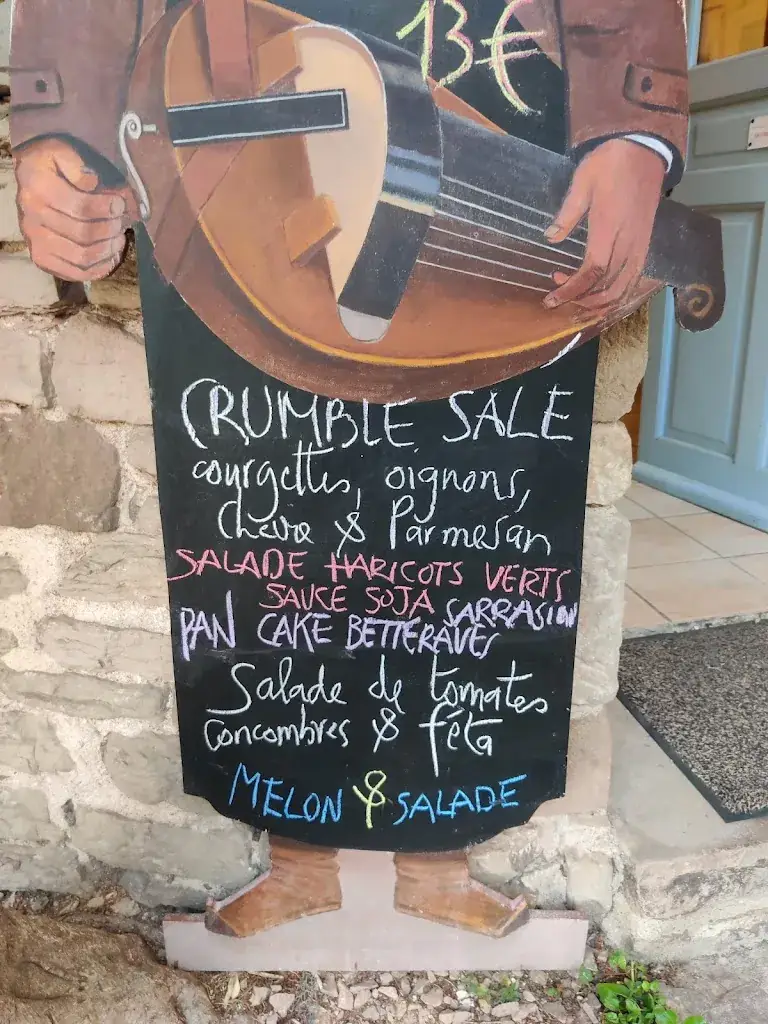 13€
CRUMBLE SALE
courgettes, oignons,
chèvre & Parmesan
SALADE HARICOTS VERTS
SAUCE SOJA SARRASIN
PAN CAKE BETTERAVES
Salade de tomates
Concombres & féta
MELON & SALADE